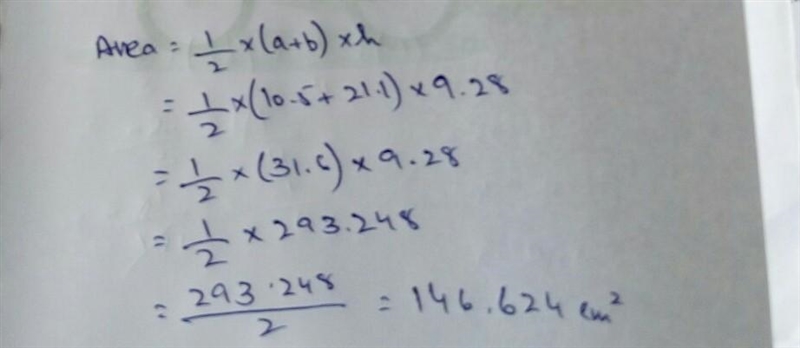 Area = 1/2 × (a+b) × h
= 1/2 × (10.5 + 21.1) × 9.28
= 1/2 × (31.6) × 9.28
= 1/2 × 293.248
= 293.248/2 = 146.624 cm²